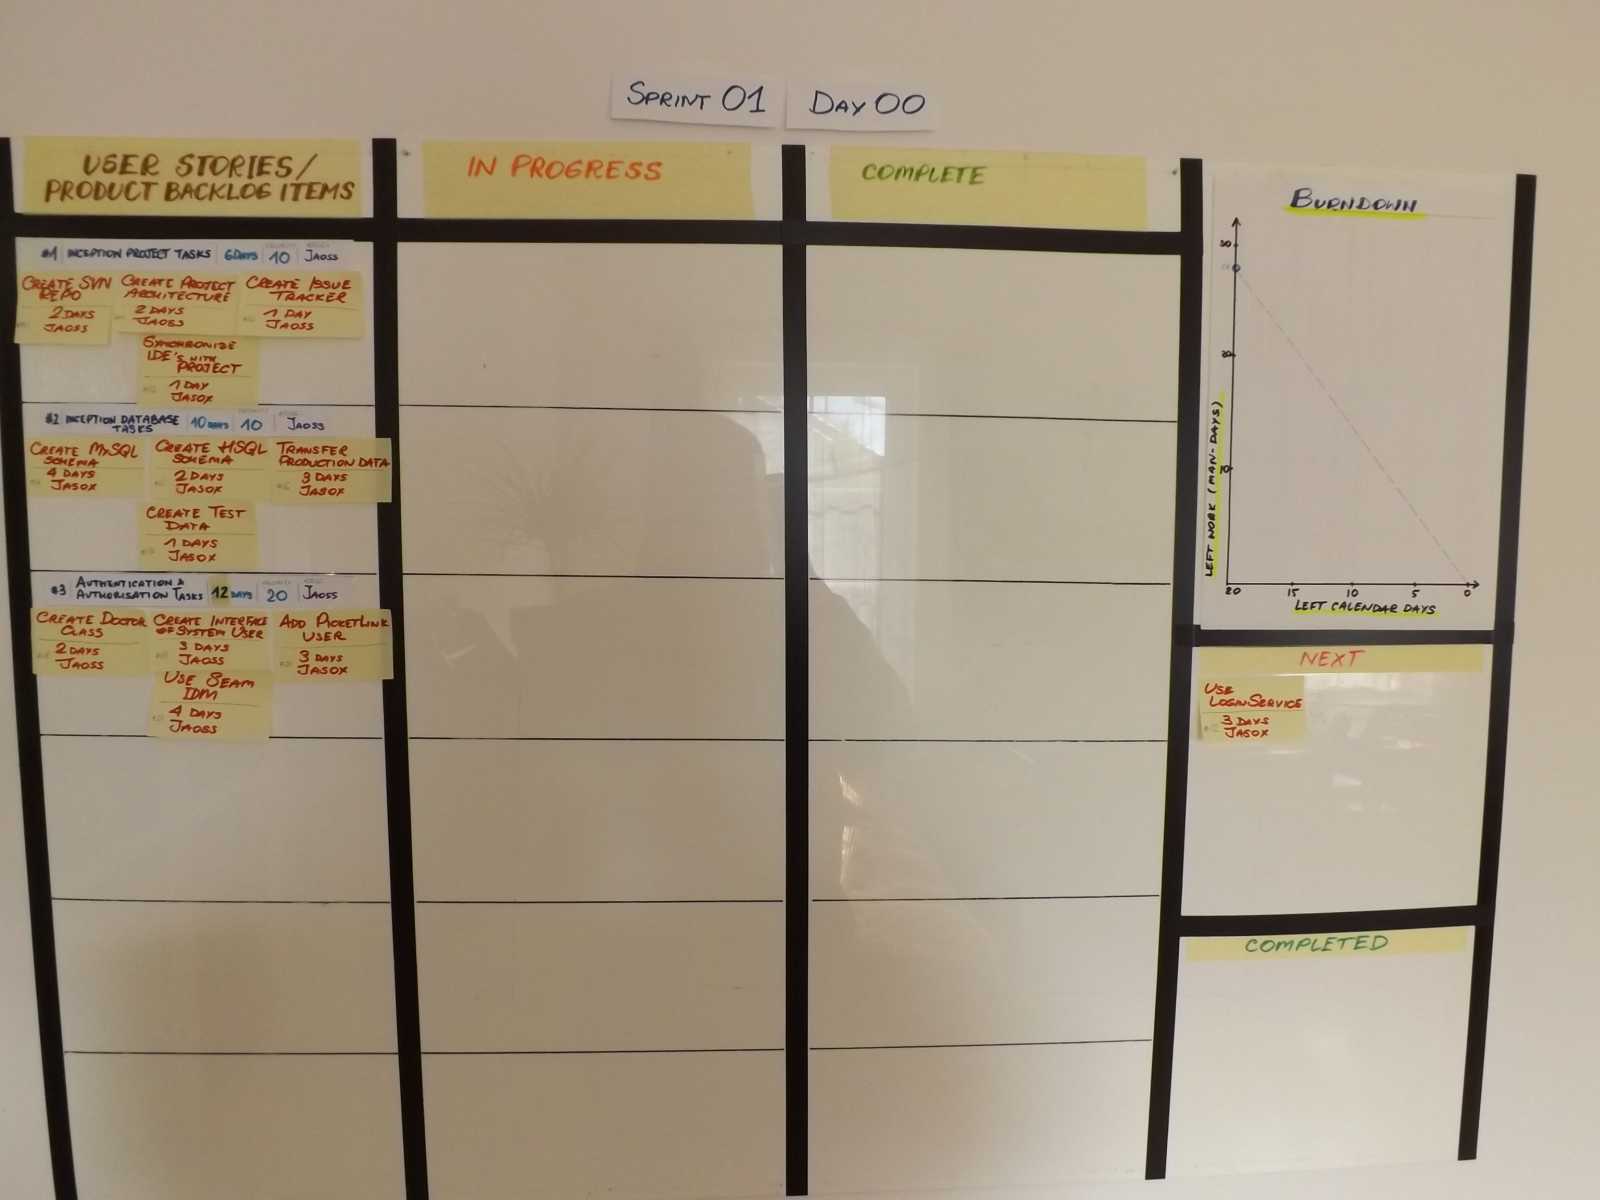 SPRINT 01
DAY 00
USER STORIES/
PRODUCT BACKLOG ITEMS
IN PROGRESS
COMPLETE
BURNDOWN
#1 INCEPTION PROJECT TASKS 6 DAYS 10 JAOSS
CREATE SVN
REPO
2 DAYS
JAOSS
CREATE PROJECT
ARCHITECTURE
2 DAYS
JAOSS
CREATE ISSUE
TRACKER
1 DAY
JAOSS
SYNCHRONIZE
IDE'S WITH
PROJECT
1 DAY
JASOX
#2 INCEPTION DATABASE
TASKS
10 DAYS 10 JAOSS
CREATE MYSQL
SCHEMA
4 DAYS
JASOX
CREATE HSQL
SCHEMA
2 DAYS
JASOX
TRANSFER
PRODUCTION DATA
3 DAYS
JASOX
CREATE TEST
DATA
1 DAYS
JASOX
#3 AUTHENTICATION &
AUTHORISATION TASKS
12 DAYS 20 JAOSS
CREATE DOCTOR
CLASS
2 DAYS
JAOSS
CREATE INTERFACE
OF SYSTEM USER
3 DAYS
JAOSS
ADD PICKETLINK
USER
3 DAYS
JASOX
USE SEAM
IDM
4 DAYS
JAOSS
30
20
10
LEFT WORK (MAN-DAYS)
20 15 10 5 0
LEFT CALENDAR DAYS
NEXT
USE
LOGINSERVICE
3 DAYS
JASOX
COMPLETED